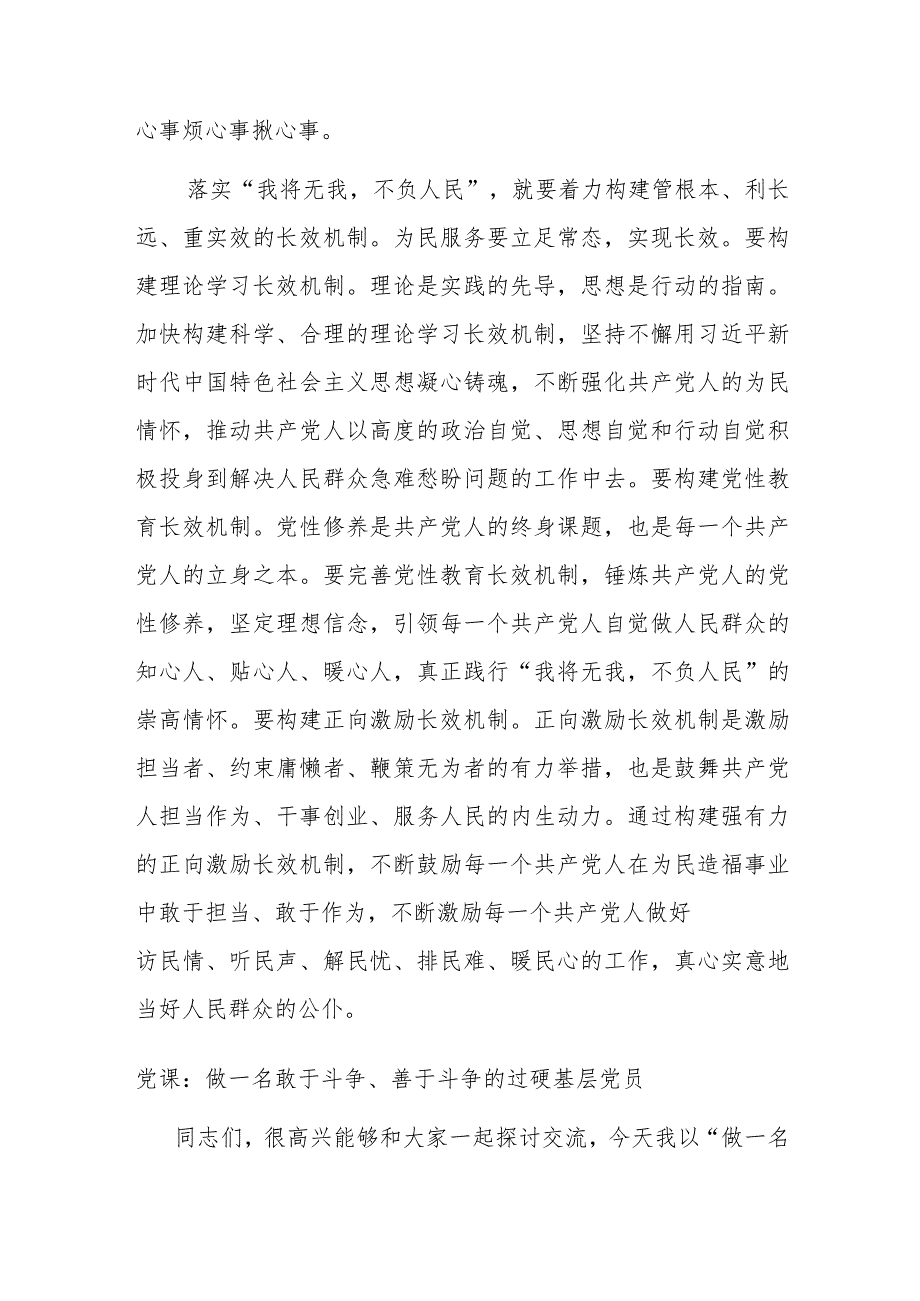 心事烦心事揪心事。
落实“我将无我，不负人民”，就要着力构建管根本、利长
远、重实效的长效机制。为民服务要立足常态，实现长效。要构
建理论学习长效机制。理论是实践的先导，思想是行动的指南。
加快构建科学、合理的理论学习长效机制，坚持不懈用习近平新
时代中国特色社会主义思想凝心铸魂，不断强化共产党人的为民
情怀，推动共产党人以高度的政治自觉、思想自觉和行动自觉积
极投身到解决人民群众急难愁盼问题的工作中去。要构建党性教
育长效机制。党性修养是共产党人的终身课题，也是每一个共产
党人的立身之本。要完善党性教育长效机制，锤炼共产党人的党
性修养，坚定理想信念，引领每一个共产党人自觉做人民群众的
知心人、贴心人、暖心人，真正践行“我将无我，不负人民”的
崇高情怀。要构建正向激励长效机制。正向激励长效机制是激励
担当者、约束庸懒者、鞭策无为者的有力举措，也是鼓舞共产党
人担当作为、干事创业、服务人民的内生动力。通过构建强有力
的正向激励长效机制，不断鼓励每一个共产党人在为民造福事业
中敢于担当、敢于作为，不断激励每一个共产党人做好
访民情、听民声、解民忧、排民难、暖民心的工作，真心实意地
当好人民群众的公仆。
党课：做一名敢于斗争、善于斗争的过硬基层党员
同志们，很高兴能够和大家一起探讨交流，今天我以“做一名